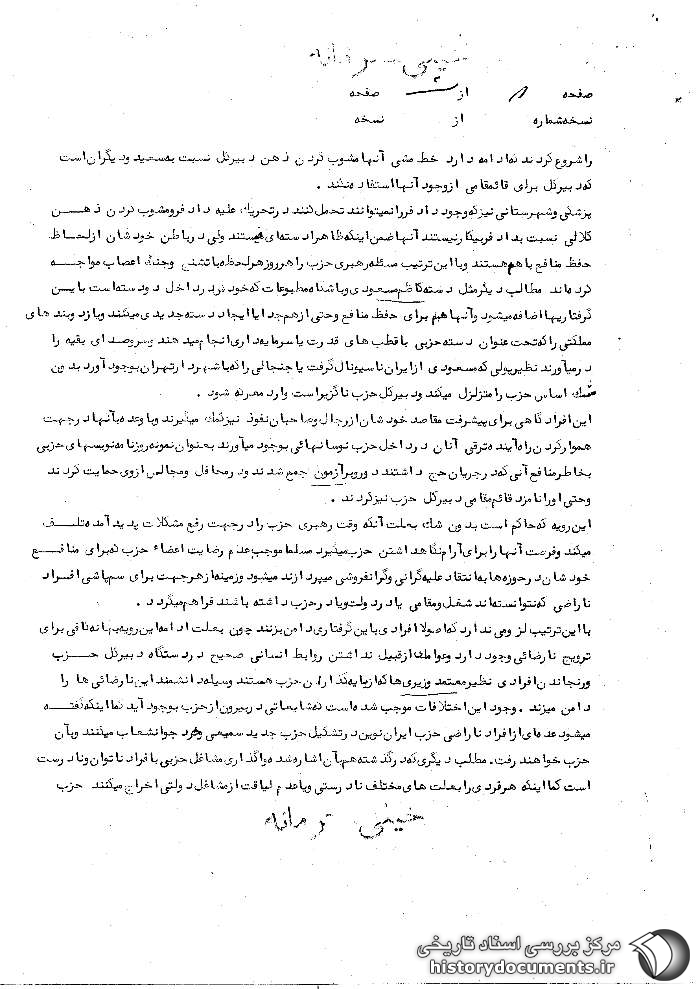 خیلی محرمانه
صفحه ۸ از صفحه
نسخه شماره از نسخه
را شروع کردند که ادامه دارد خط مشی آنها مشوب کردن ذهن دبیرکل نسبت به سعید و دیگران است
که دبیرکل برای قائم مقامی از وجود آنها استفاده میکند .
پزشکی و شهرستانی نیز که وجود دادفر را نمیتوانند تحمل کنند در تحریک علیه دادفر و مشوب کردن ذهن
کلالی نسبت به دادفر بیکار نیستند آنها ضمن اینکه ظاهرا دسته‌ای هستند ولی در باطن خودشان از لحاظ
حفظ منافع با هم هستند و با این ترتیب مسئله رهبری حزب را هر روز هر لحظه با تشنج و جنگ اعصاب مواجه
کرده‌اند مطالب دیگر مثل دسته کاظم مسعودی و باشگاه مطبوعات که خود نیز در داخل دو دسته است با این
گرفتاریها اضافه میشود و آنها هم برای حفظ منافع و حتی از هم جدا یا ایجاد دسته جدیدی میکنند و با زد و بندهای
مملکتی را که تحت عنوان دسته حزبی با قطب های قدرت یا سرمایه داری انجام میدهند و سر و صدای بقیه را
در میآورند نظیر پولی که مسعودی از ایران ناسیونال گرفت یا جنجالی را که با شهردار تهران بوجود آورد بدون
شک اساس حزب را متزلزل میکند و دبیرکل حزب ناگزیر است وارد معرکه شود .
این افراد گاهی برای پیشرفت مقاصد خودشان از رجال و صاحبان نفوذ نیز کمک میگیرند و با وعده به آنها در جهت
هموار کردن راه آینده ترقی آنان در داخل حزب نوسانهائی بوجود میآورند بعنوان نمونه روزنامه نویسهای حزبی
بخاطر منافع آنی که در جریان حج داشتند دور و بر آزمون جمع شدند و در محافل و مجالس از وی حمایت کردند
و حتی او را نامزد قائم مقامی دبیرکل حزب نیز کردند .
این رویه که حاکم است بدون شک بعلت آنکه وقت رهبری حزب را در جهت رفع مشکلات پدید آمده تلف
میکند و فرصت آنها را برای آرام نگاهداشتن حزب میگیرد مسلما موجب عدم رضایت اعضاء حزب که برای منافع
خودشان در حوزه ها به انتقاد علیه گرانی و گرانفروشی میپردازند میشود و زمینه از هر جهت برای سم پاشی افراد
ناراضی که نتوانسته اند شغل و مقامی یا در دولت و یا در حزب داشته باشند فراهم میگردد .
با این ترتیب لزومی ندارد که اصولا افرادی باین گرفتاری دامن بزنند چون بعلت ادامه این رویه بهانه کافی برای
ترویج نارضائی وجود دارد و عواملی از قبیل نداشتن روابط انسانی صحیح در دستگاه دبیرکل حزب
و رنجاندن افرادی نظیر معتمد وزیری ها که از پایه گذاران حزب هستند وسیله دانشمند این نارضائی ها را
دامن میزند . وجود این اختلافات موجب شده است که شایعاتی در بیرون از حزب بوجود آید کما اینکه گفته
میشود عده‌ای از افراد ناراضی حزب ایران نوین در تشکیل حزب جدید سمیعی و فرد جو انشعاب میکنند و بآن
حزب خواهند رفت. مطلب دیگری که در گذشته هم بآن اشاره شده واگذاری مشاغل حزبی با فراد ناتوان و نادرست
است کما اینکه هر فردی را بعلت های مختلف نادرستی و یا عدم لیاقت از مشاغل دولتی اخراج میکنند حزب
خیلی محرمانه
مرکز بررسی اسناد تاریخی
historydocuments.ir